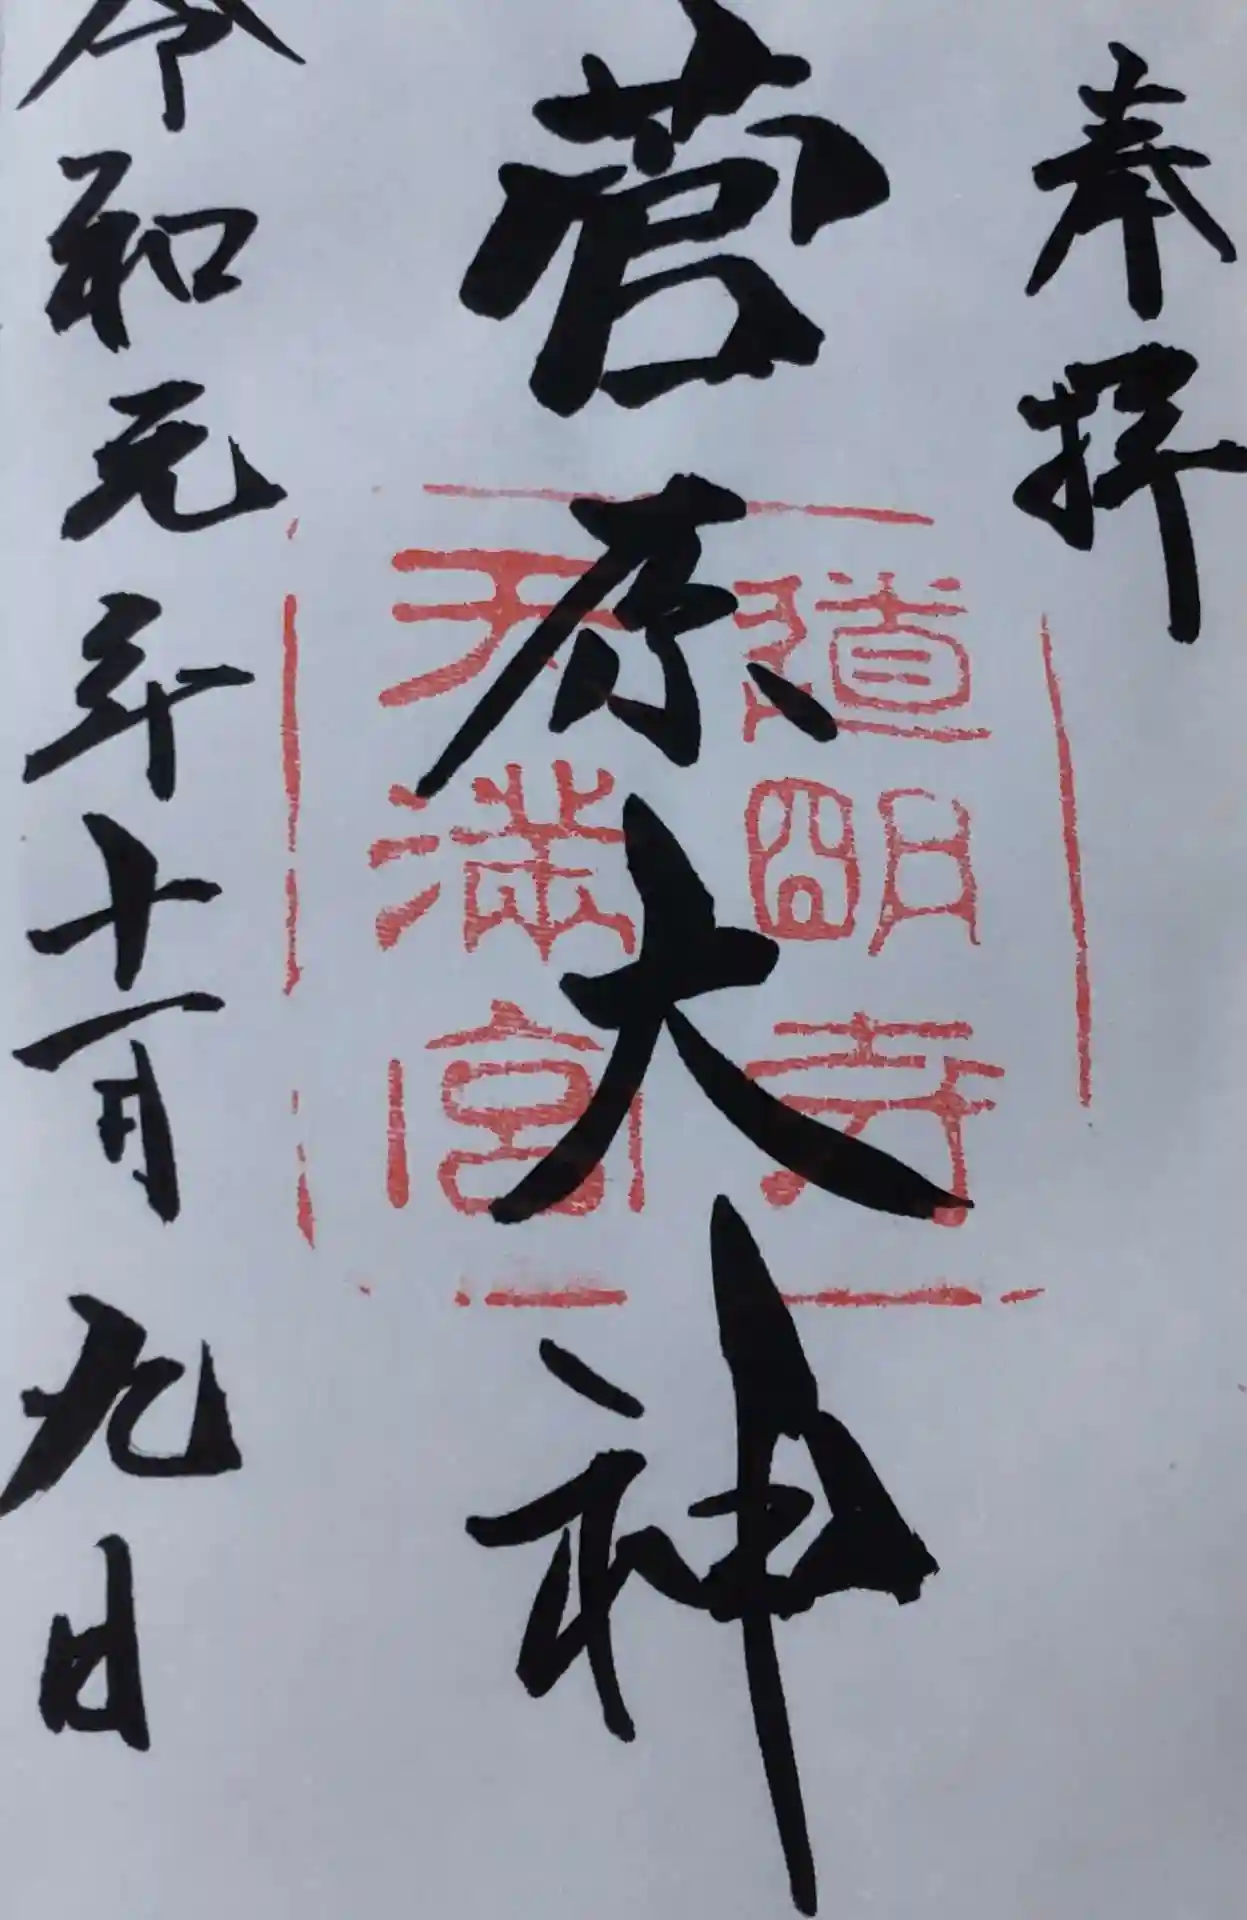 奉拝
菅原大神
道明寺
天満宮
令和元年十一月九日